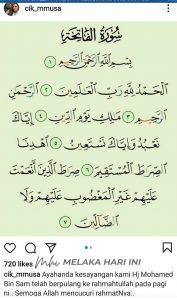 cik_mmusa
سُورَةُ الْفَاتِحَةِ
بِسْمِ اللَّهِ الرَّحْمَٰنِ الرَّحِيمِ ١
الْحَمْدُ لِلَّهِ رَبِّ الْعَالَمِينَ ٢ الرَّحْمَٰنِ
الرَّحِيمِ ٣ مَالِكِ يَوْمِ الدِّينِ ٤ إِيَّاكَ
نَعْبُدُ وَإِيَّاكَ نَسْتَعِينُ ٥ اهْدِنَا
الصِّرَاطَ الْمُسْتَقِيمَ ٦ صِرَاطَ الَّذِينَ أَنْعَمْتَ
عَلَيْهِمْ غَيْرِ الْمَغْضُوبِ عَلَيْهِمْ وَلَا
الضَّالِّينَ ٧
720 likes Mhi MELAKA HARI INI
cik_mmusa Ayahanda kesayangan kami Hj Mohamed
Bin Sam telah berpulang ke rahmahtullah pada pagi
ini.. Semoga Allah mencucuri rahmatNya..